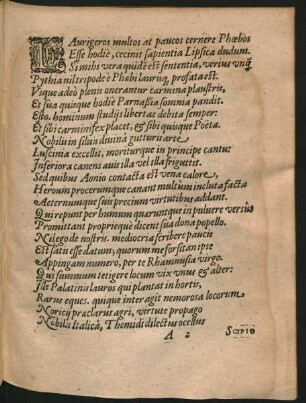 LAurigeros multos at paucos cernere Phœbos
Esse hodiè, cecinit sapientia Lipsica dudum.
Si mihi vera quidē est sententia, verius unq̃
Pythia nil tripode è Phœbi lauruq́; profata est.
Usque adeò plenis onerantur carmina plaustris,
Et sua quisque hodiè Parnassia somnia pandit.
Esto. hominum studijs libertas debita semper:
Et sibi carminifex placet, & sibi quisque Poëta.
Nobilium silvis divinâ gutturis arte
Luscinia excellit, moriturque in principe cantu:
Inferiora canens avis illa vel illa friguttit.
Sed quibus Aonio contacta est vena calore,
Heroum procerumque canant multum inclita facta
Aeternumque suis precium virtutibus addant.
Qui repunt per humum quaruntque in pulvere versus
Promittant propriéque dicent sua dona popello.
Ni lego de nostris. mediocria scribere paucis
Est satis esse datum; quorum me forsitan ipse
Appingam numero, per te Rhamnusia virgo.
Qui summum tetigere locum vix unus & alter:
Ille Palatinis lauros qui plantat in hortis,
Rarus eques. quique interagit nemorosa locorum
Noricij praclarus agri, virtute propago
Nobilis Italicâ, Themidi dilectus ocellus
A 2 Scipio